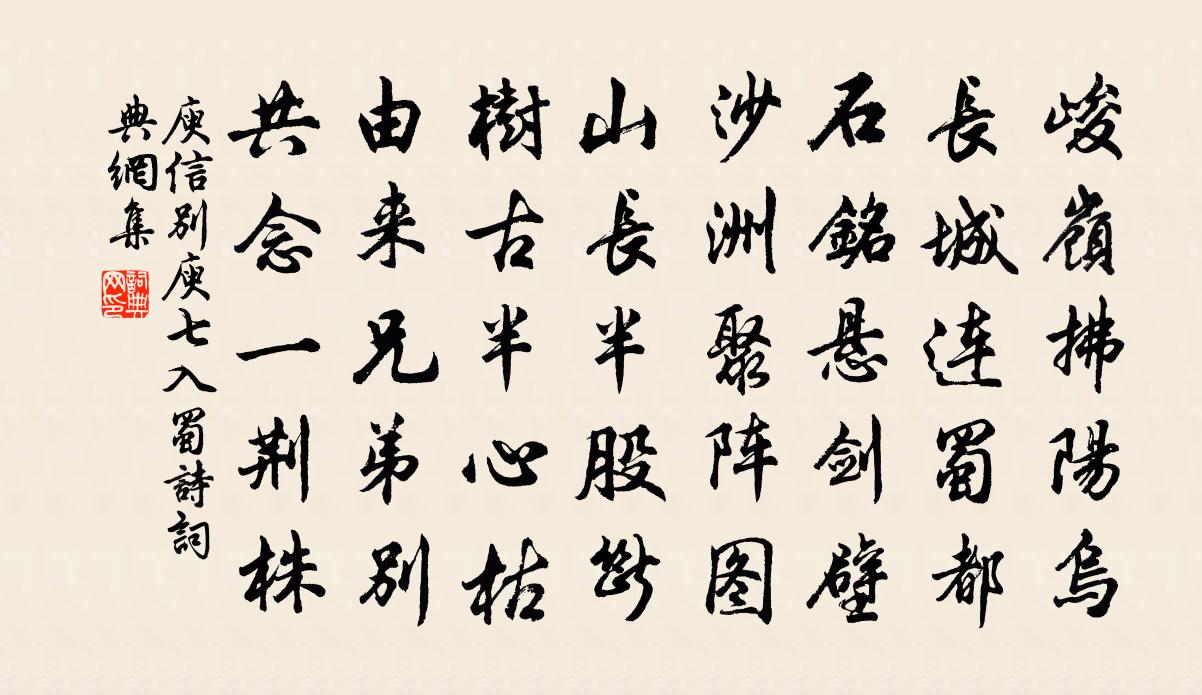 峻嶺拂陽烏
長城連蜀都
石銘懸剑壁
沙洲聚阵图
山長半股斷
樹古半心枯
由来兄弟别
共念一荆株
庾信别庾七入蜀詩詞
典網集
詞典
网印